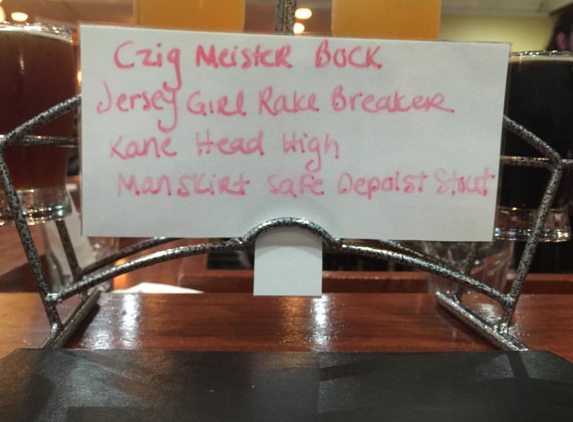 Czig Meister Bock
Jersey Girl Rake Breaker
Kane Head High
Manskirt Safe Depoist Stout